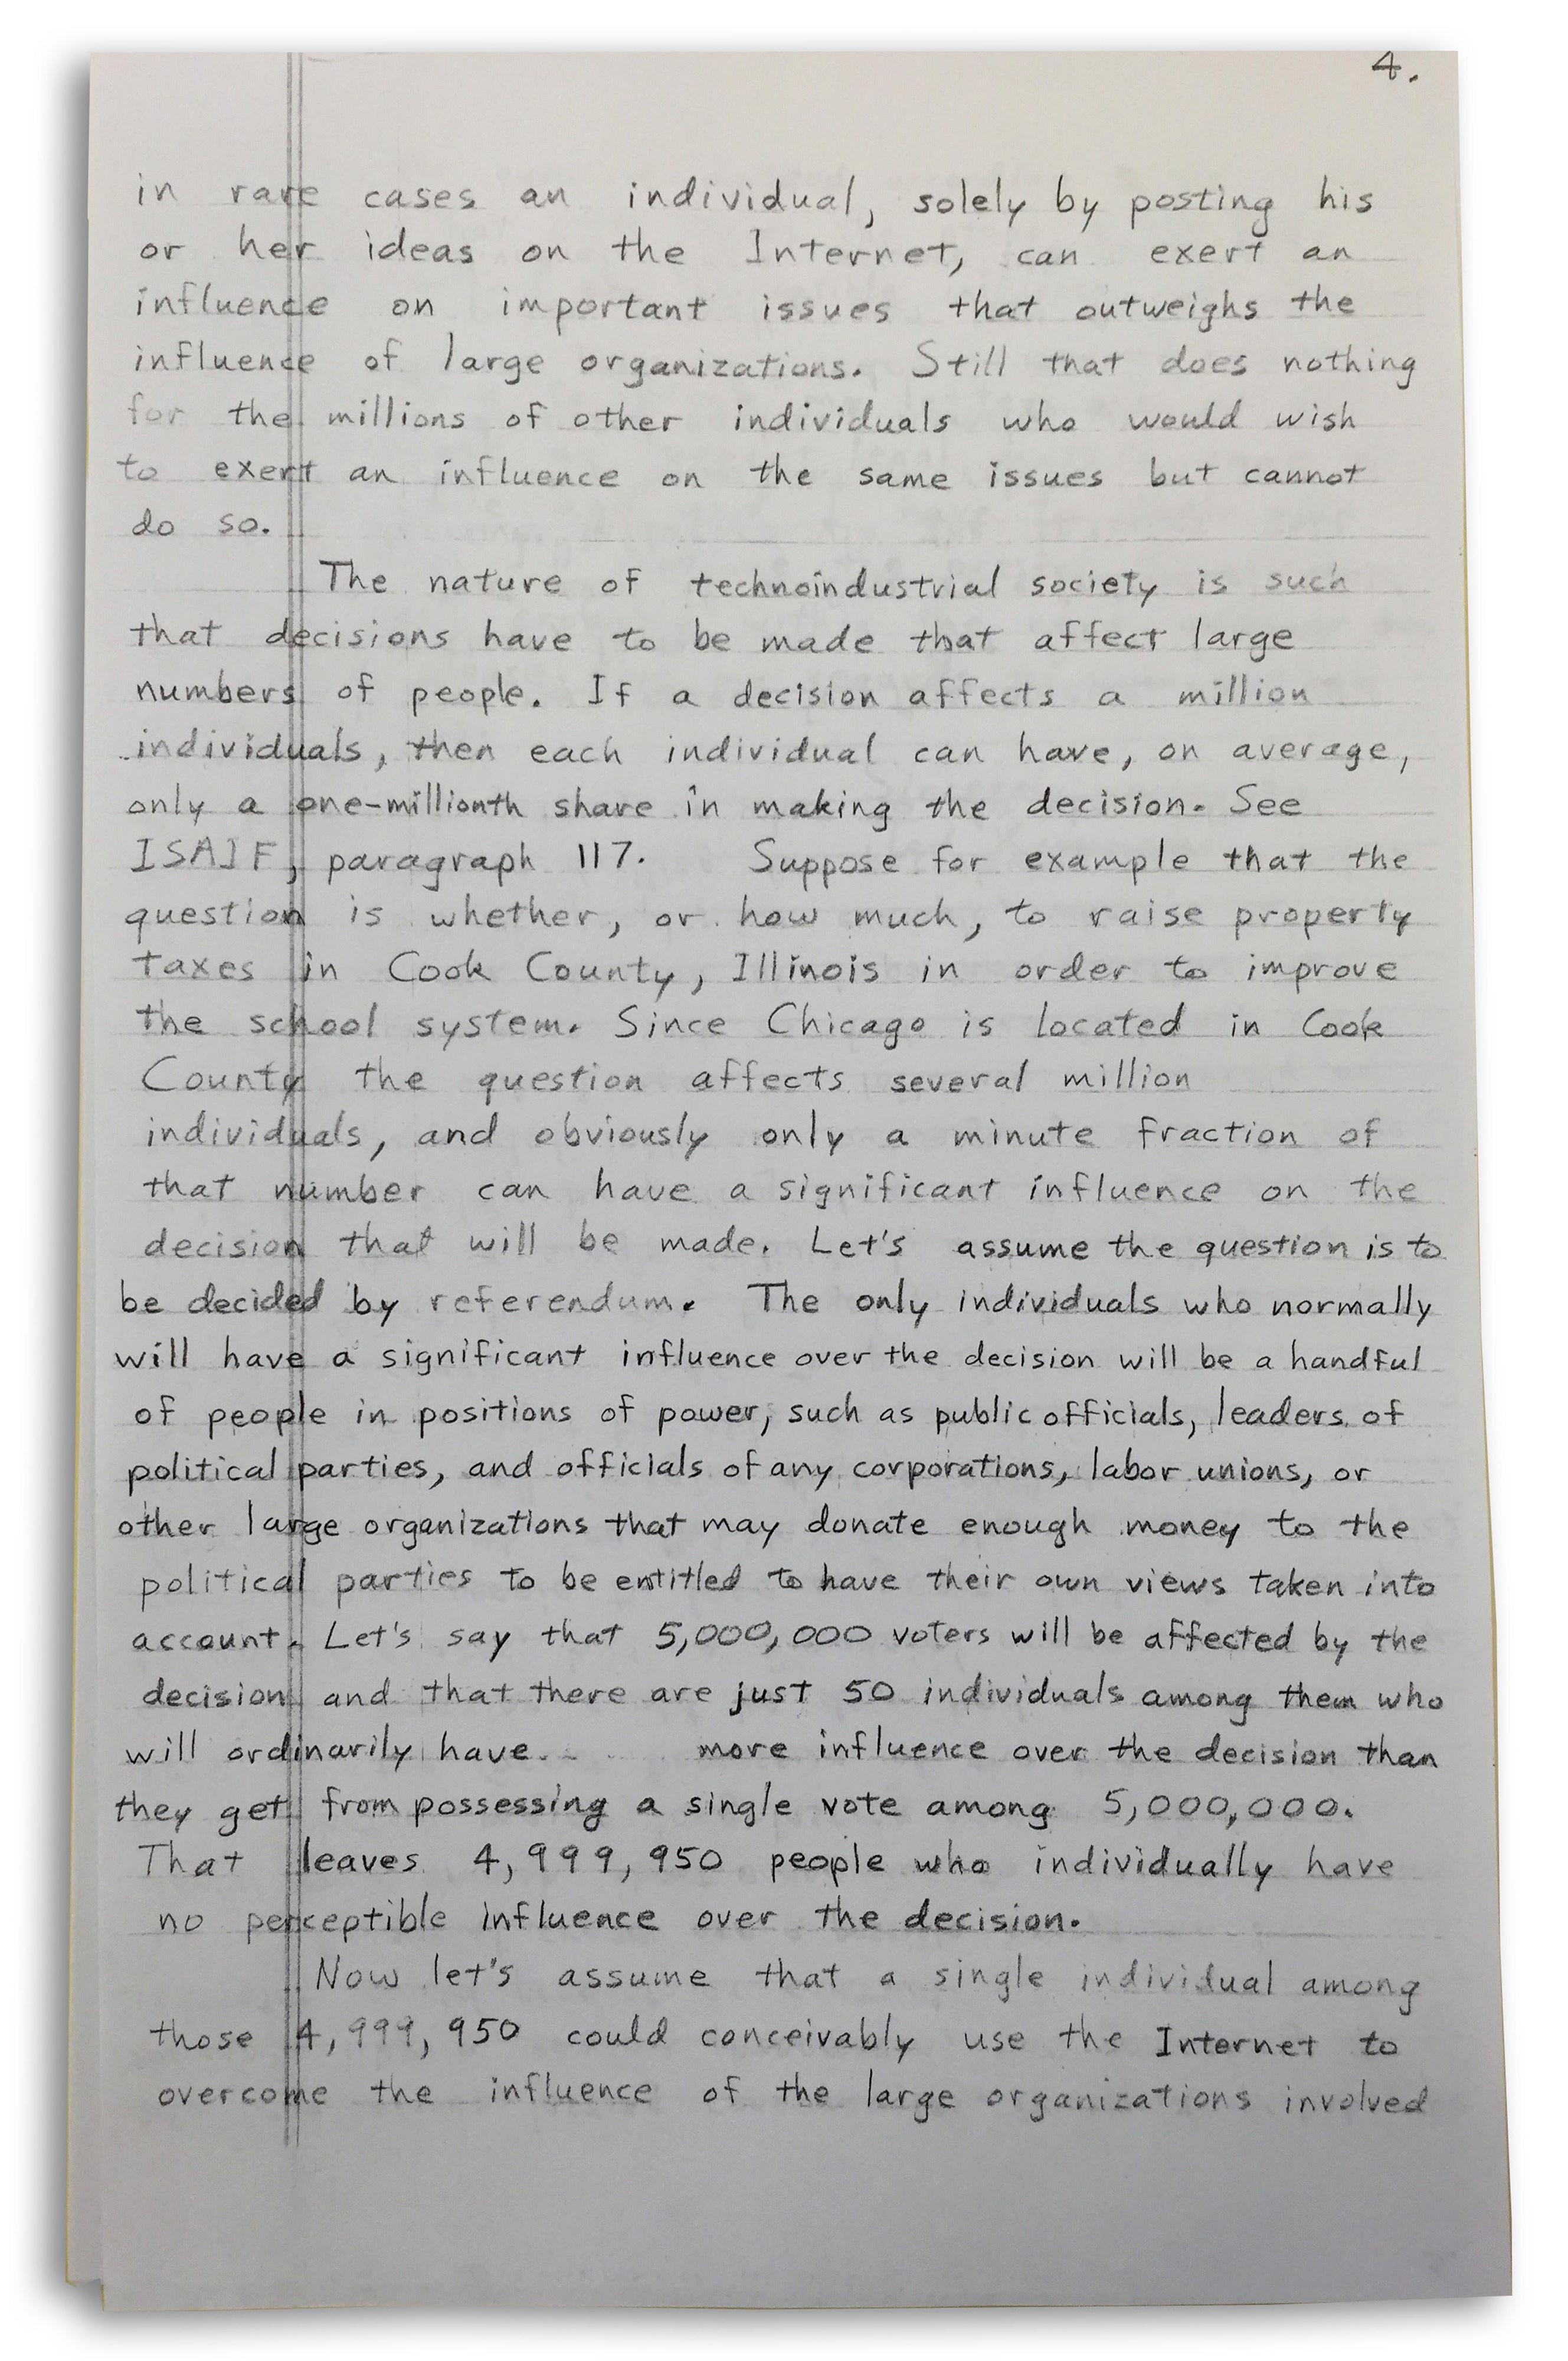 4.
in rare cases an individual, solely by posting his
or her ideas on the Internet, can exert an
influence on important issues that outweighs the
influence of large organizations. Still that does nothing
for the millions of other individuals who would wish
to exert an influence on the same issues but cannot
do so.
The nature of technoindustrial society is such
that decisions have to be made that affect large
numbers of people. If a decision affects a million
individuals, then each individual can have, on average,
only a one-millionth share in making the decision. See
ISAIF, paragraph 117. Suppose for example that the
question is whether, or how much, to raise property
taxes in Cook County, Illinois in order to improve
the school system. Since Chicago is located in Cook
County the question affects several million
individuals, and obviously only a minute fraction of
that number can have a significant influence on the
decision that will be made. Let's assume the question is to
be decided by referendum. The only individuals who normally
will have a significant influence over the decision will be a handful
of people in positions of power, such as public officials, leaders of
political parties, and officials of any corporations, labor unions, or
other large organizations that may donate enough money to the
political parties to be entitled to have their own views taken into
account. Let's say that 5,000,000 voters will be affected by the
decision and that there are just 50 individuals among them who
will ordinarily have more influence over the decision than
they get from possessing a single vote among 5,000,000.
That leaves 4,999,950 people who individually have
no perceptible influence over the decision.
Now let's assume that a single individual among
those 4,999,950 could conceivably use the Internet to
overcome the influence of the large organizations involved